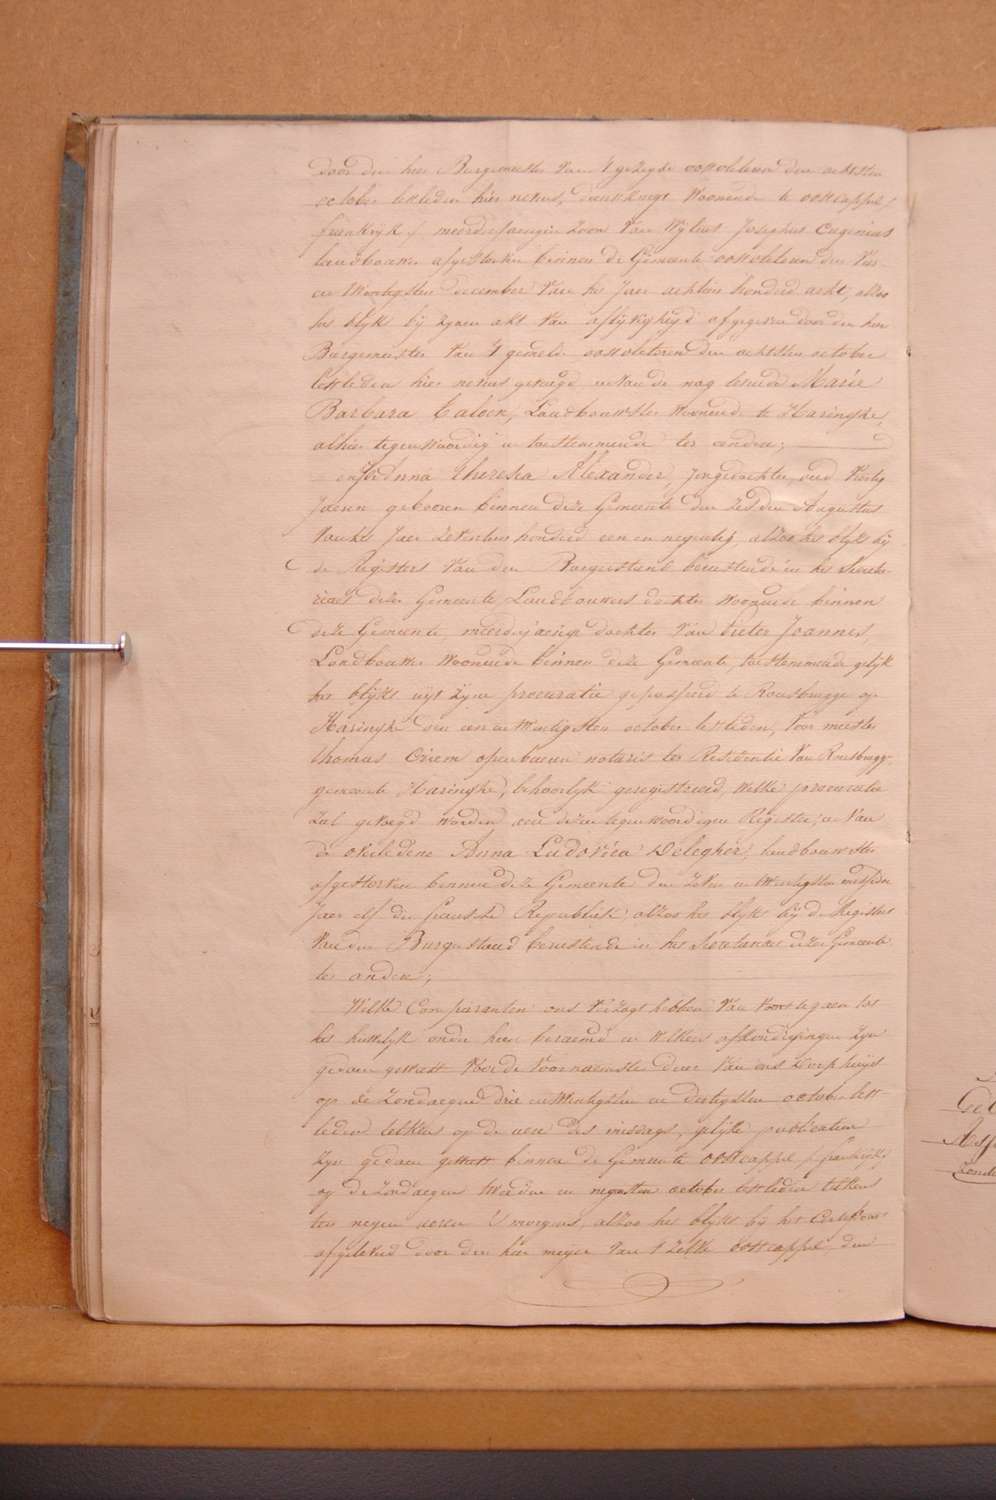 door den heer Burgemeester van 't gezegde oostvleteren den achtsten
october lestleden hier nevens, dienstknegt woonende te oostcappel (
frankryk) meerderjaerigen zoon van wylent Josephus Eugenius
landbouwer afgestorven binnen de Gemeente oostvleteren den vier-
en twintigsten december van het Jaer achtien honderd acht, alzoo
het blykt by zynen akt van aflyvigheyd afgegeven door den heer
Burgemeester van 't gemelde oostvleteren den achtsten october
lestleden hier nevens gevoegd en van de nog levende Marie
Barbara Caloen, Landbouwster woonende te Haringhe,
alhier tegenwoordig en toestemmende ter eendre;
Anna Theresia Alexander, Jongedochter, oud veertig
Jaeren geboren binnen deze Gemeente den zesden Augustus
van het Jaer zeventien honderd een en negentig, alzoo het blykt by
de Registers van den Borgerstand berustende in het Secreta-
riaet dezer Gemeente, Landbouwers dochter woonende binnen
deze Gemeente, meerderjaerige dochter van Pieter Joannes,
Landbouwer woonende binnen deze Gemeente, toestemmende gelyk
het blykt uyt zyne procuratie gepasseerd te Rousbrugge op
Haringhe den een en twintigsten october lestleden, voor meester
thomas openbaeren notaris ter Residentie van Rousbrugge
gemeente Haringhe, behoorlyk geregistreerd, welke procuratie
zal gevoegd worden aen dezen tegenwoordigen Register, en van
de overledene Anna Ludovica Deleghér, landbouwster
afgestorven binnen deze Gemeente den zeven en twintigsten messidor
Jaer elf der fransche Republiek, alzoo het blykt by de Registers
van den Burgerstand berustende in het Secretariaet dezer Gemeente
ter andere;
Welke Comparanten ons verzogt hebben van voorts te gaen tot
het huwelyk onder hun beraemd en welkers afkondigingen zyn
gedaen geweest voor de voornaemste deur van ons Dorphuys
op de zondaegen drie en twintigsten en dertigsten october lest-
leden telkens op de uere des middags, gelyke publicatien
zyn gedaen geweest binnen de Gemeente Oostcappel (frankryk)
op de zondaegen tweeden en negensten october lestleden telkens
ten negen ueren 's morgens, alzoo het blykt by het Certificaet
afgeleverd door den heer meyer van 't zelve Oostcappel, den